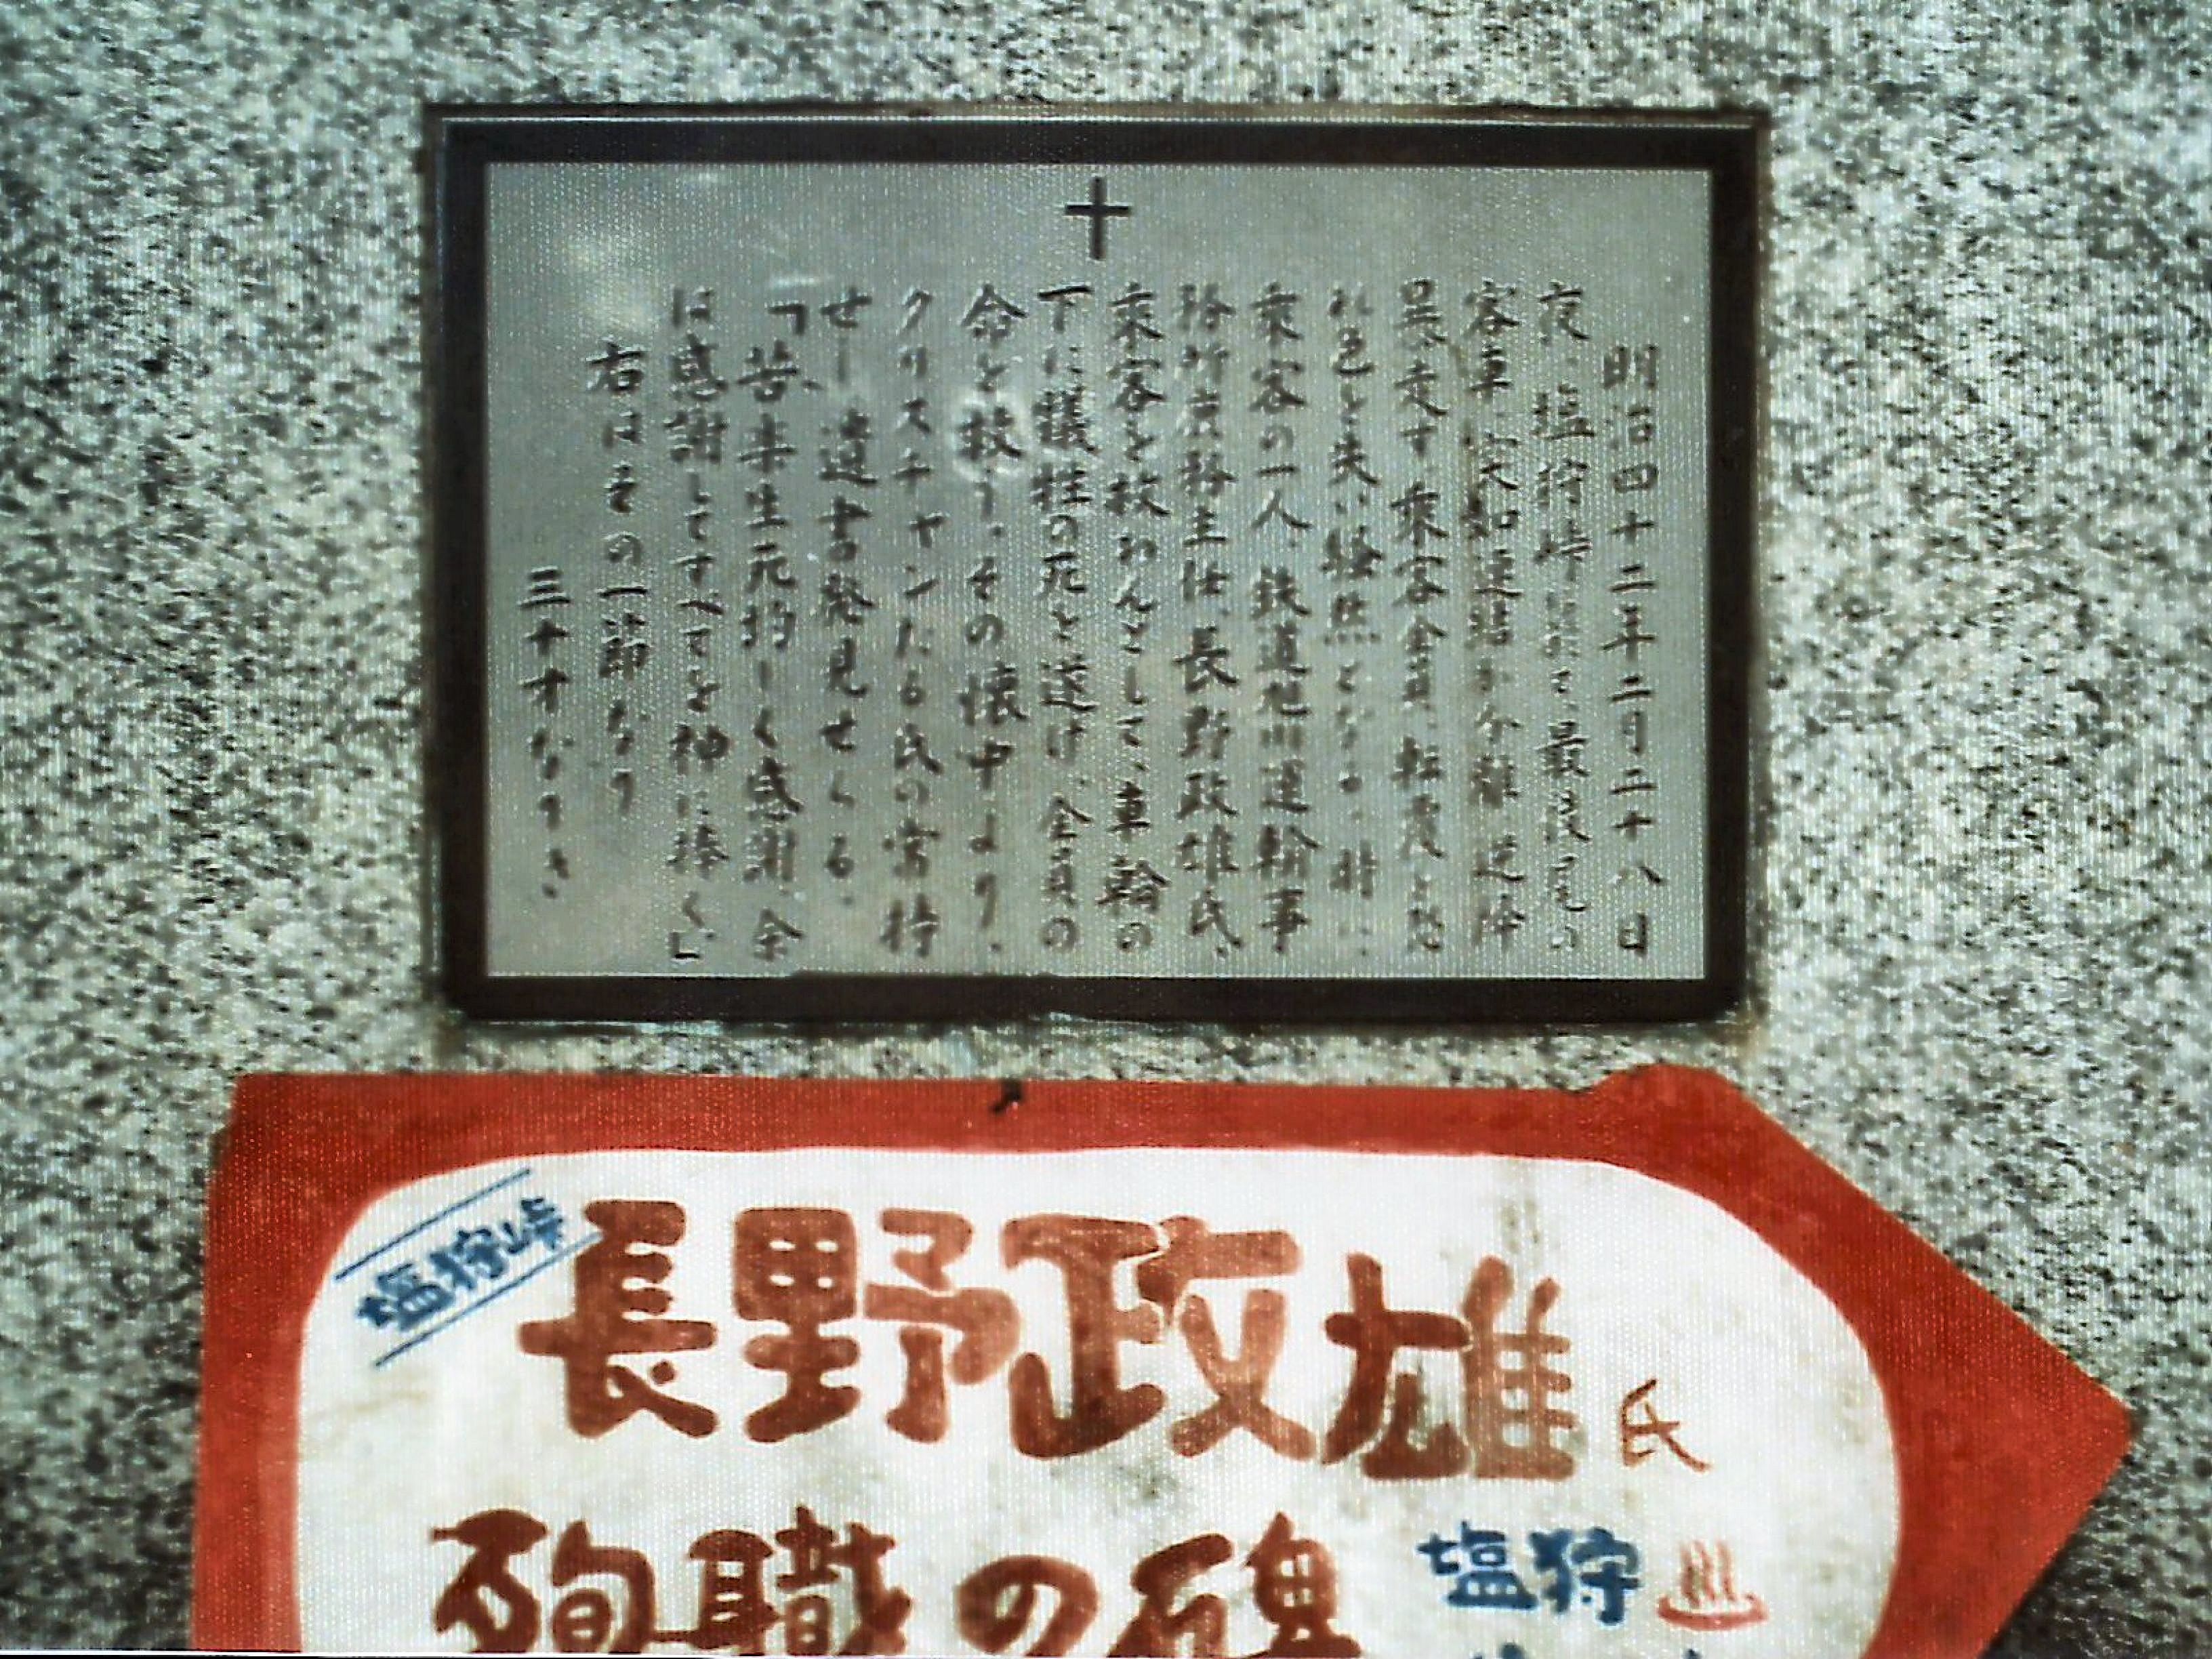 明治四十二年二月二十八日
夜、塩狩峠に於て、最後尾の
客車、突如連結が分離、逆降
暴走す。乗客全員、転覆を恐
れ色を失い騒然となる。時に、
乗客の一人、鉄道旭川運輸事
務所庶務主任、長野政雄氏、
乗客を救わんとして、車輪の
下に犠牲の死を遂げ、全員の
命を救う。その懐中より、
クリスチャンたる氏の常持
せし遺書発見せらる。
「苦楽生死均しく感謝。余
は感謝してすべてを神に捧ぐ」
右はその一節なり
三十才なりき
塩狩峠
長野政雄氏
殉職の碑
塩狩